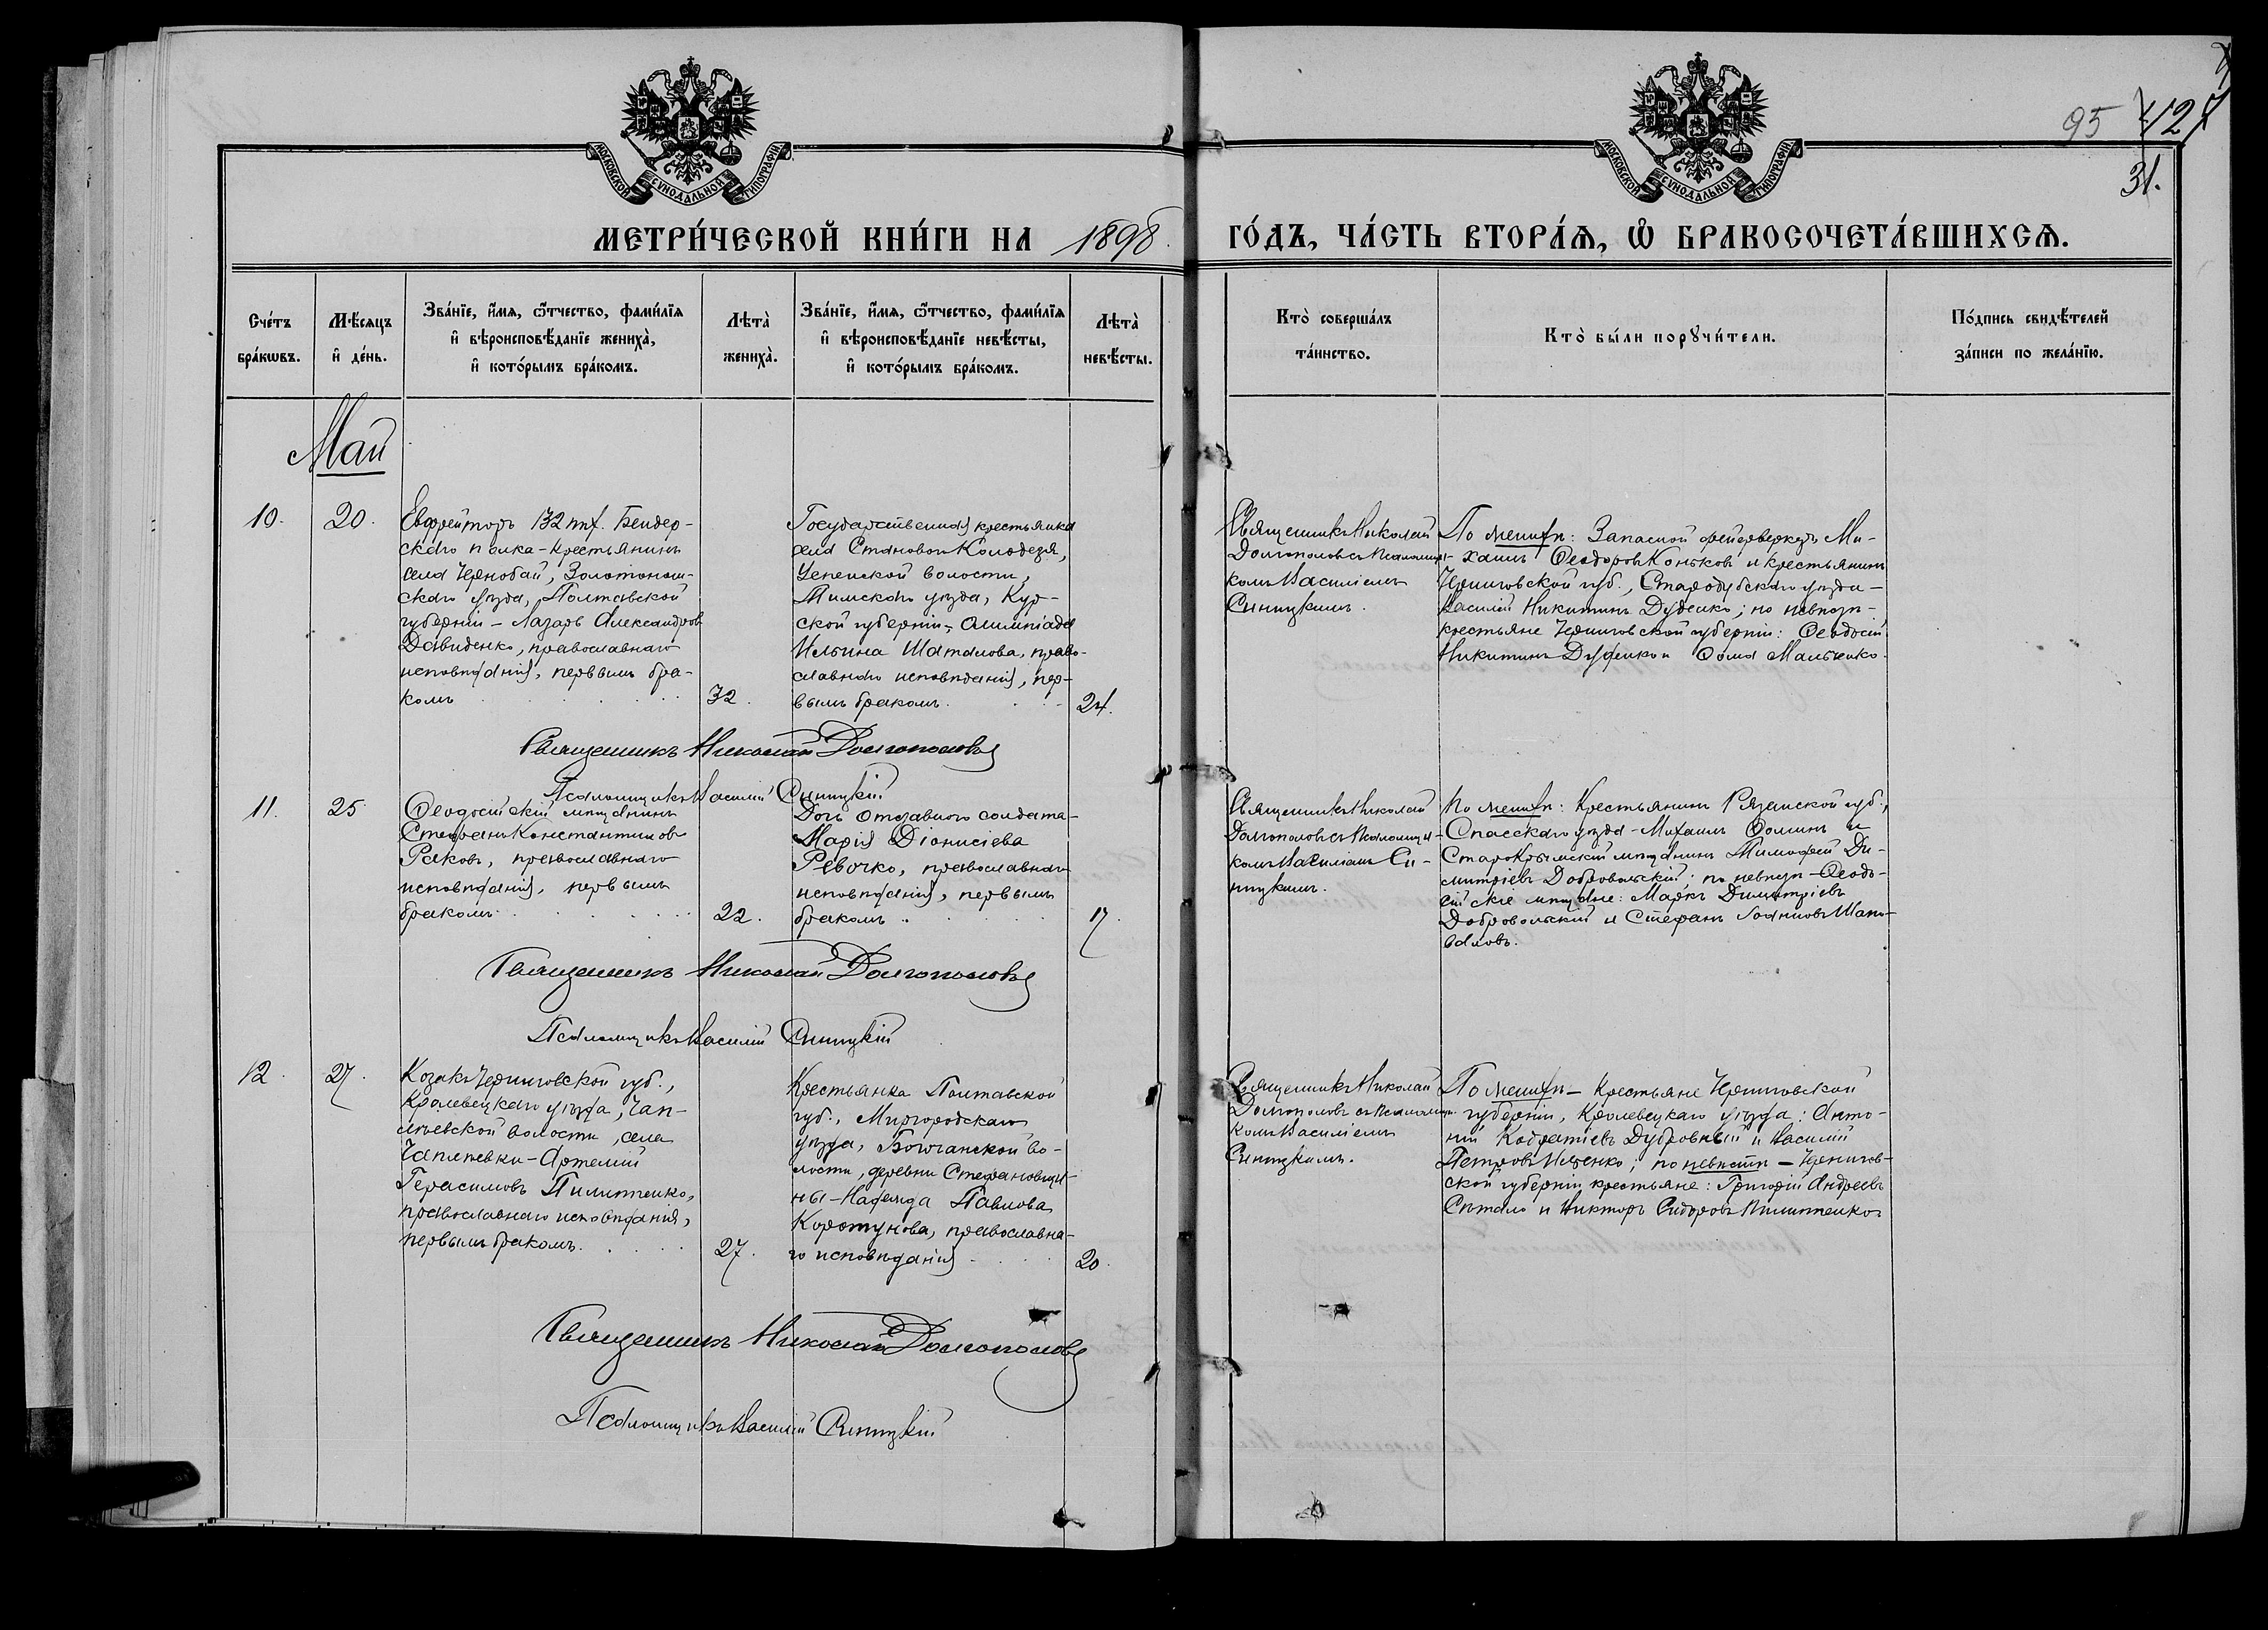 МОСКОВСКОЙ СѴНОДАЛЬНОЙ ТИПОГРАФІИ
МОСКОВСКОЙ СѴНОДАЛЬНОЙ ТИПОГРАФІИ
95 427
31.
МЕТРИ́ЧЕСКОЙ КНИ́ГИ НА 1898 ГО́ДЪ, ЧА́СТЬ ВТОРА́Ѧ, Ѡ҆ БРАКОСОЧЕТА́ВШИХСѦ.
Сче́тъ
бра́кѡвъ.
Мѣ́сяцъ
и҆ де́нь.
Зва́нїе, и҆́мѧ, ѻ҆́тчество, фами́лїѧ
и҆ вѣроисповѣ́данїе жениха̀,
и҆ кото́рымъ бра́комъ.
Лѣта̀
жениха̀.
Зва́нїе, и҆́мѧ, ѻ҆́тчество, фами́лїѧ
и҆ вѣроисповѣ́данїе невѣ́сты,
и҆ кото́рымъ бра́комъ.
Лѣта̀
невѣ́сты.
Кто̀ соверша́лъ
та́инство.
Кто̀ бы́ли порꙋчи́тели.
По́дпись свидѣ́телей
за́писи по жела́нїю.
Май
10.
20.
Евфрейторъ 132 пѣх. Бендер-
скаго полка - крестьянинъ
села Чернобай, Золотонош-
скаго уѣзда, Полтавской
губерніи - Лазарь Александров
Давиденко, православнаго
исповѣданія, первымъ бра-
комъ
32.
Государственная крестьянка
села Становой Колодезя,
Успенской волости,
Тимскаго уѣзда, Кур-
ской губерніи, Олимпіада
Ильина Шаталова, право-
славнаго исповѣданія, пер-
вымъ бракомъ.
24.
Священникъ Николай
Долгополовъ съ псаломщи-
комъ Василіемъ
Синицкимъ.
По женихѣ: Запасной фейерверкеръ Ми-
хаилъ Ѳеодоровъ Коньковъ и крестьянинъ
Черниговской губ., Стародубскаго уѣзда -
Василій Никитинъ Дуденко; по невѣстѣ -
крестьяне Черниговской губерніи: Ѳеодосій
Никитинъ Дуденко и Ѳома Мальченко.
Священникъ Николай Долгополовъ
Псаломщикъ Василій Синицкій
11.
25
Ѳеодосійскій мѣщанинъ
Стефанъ Константиновъ
Раковъ, православнаго
исповѣданія, первымъ
бракомъ
22.
Дочь отставного солдата -
Марія Діонисіева
Ревочко, православнаго
исповѣданія, первымъ
бракомъ
17
Священникъ Николай
Долгополовъ съ псаломщи-
комъ Василіемъ Си-
ницкимъ.
По женихѣ: Крестьянинъ Рязанской губ.,
Спасскаго уѣзда - Михаилъ Ѳоминъ и
Старокрымскій мѣщанинъ Тимофей Ди-
митріевъ Добровольскій; по невѣстѣ - Ѳеодо-
сійскіе мѣщане: Маркъ Димитріевъ
Добровольскій и Стефанъ Іоанновъ Шапо-
валовъ.
Священникъ Николай Долгополовъ
Псаломщикъ Василій Синицкій
12.
27.
Козакъ Черниговской губ.,
Кролевецкаго уѣзда, Чап-
лѣевской волости, села
Чаплѣевки - Артемій
Герасимовъ Пилипенко,
православнаго исповѣданія,
первымъ бракомъ
27.
Крестьянка Полтавской
губ., Миргородскаго
уѣзда, во-
лости, деревни Стефановщи-
ны - Надежда Павлова
Коротунова, православна-
го исповѣданія
20.
Священникъ Николай
Долгополовъ съ псаломщи-
комъ Василіемъ
Синицкимъ.
По женихѣ - Крестьяне Черниговской
губерніи, Кролевецкаго уѣзда: Анто-
ній Кодратіевъ Дубровный и Василій
Петровъ Ищенко; по невѣстѣ - Чернигов-
ской губерніи крестьяне: Григорій Андреевъ
Ситало и Викторъ Сидоровъ Пилипенко.
Священникъ Николай Долгополовъ
Псаломщикъ Василій Синицкій